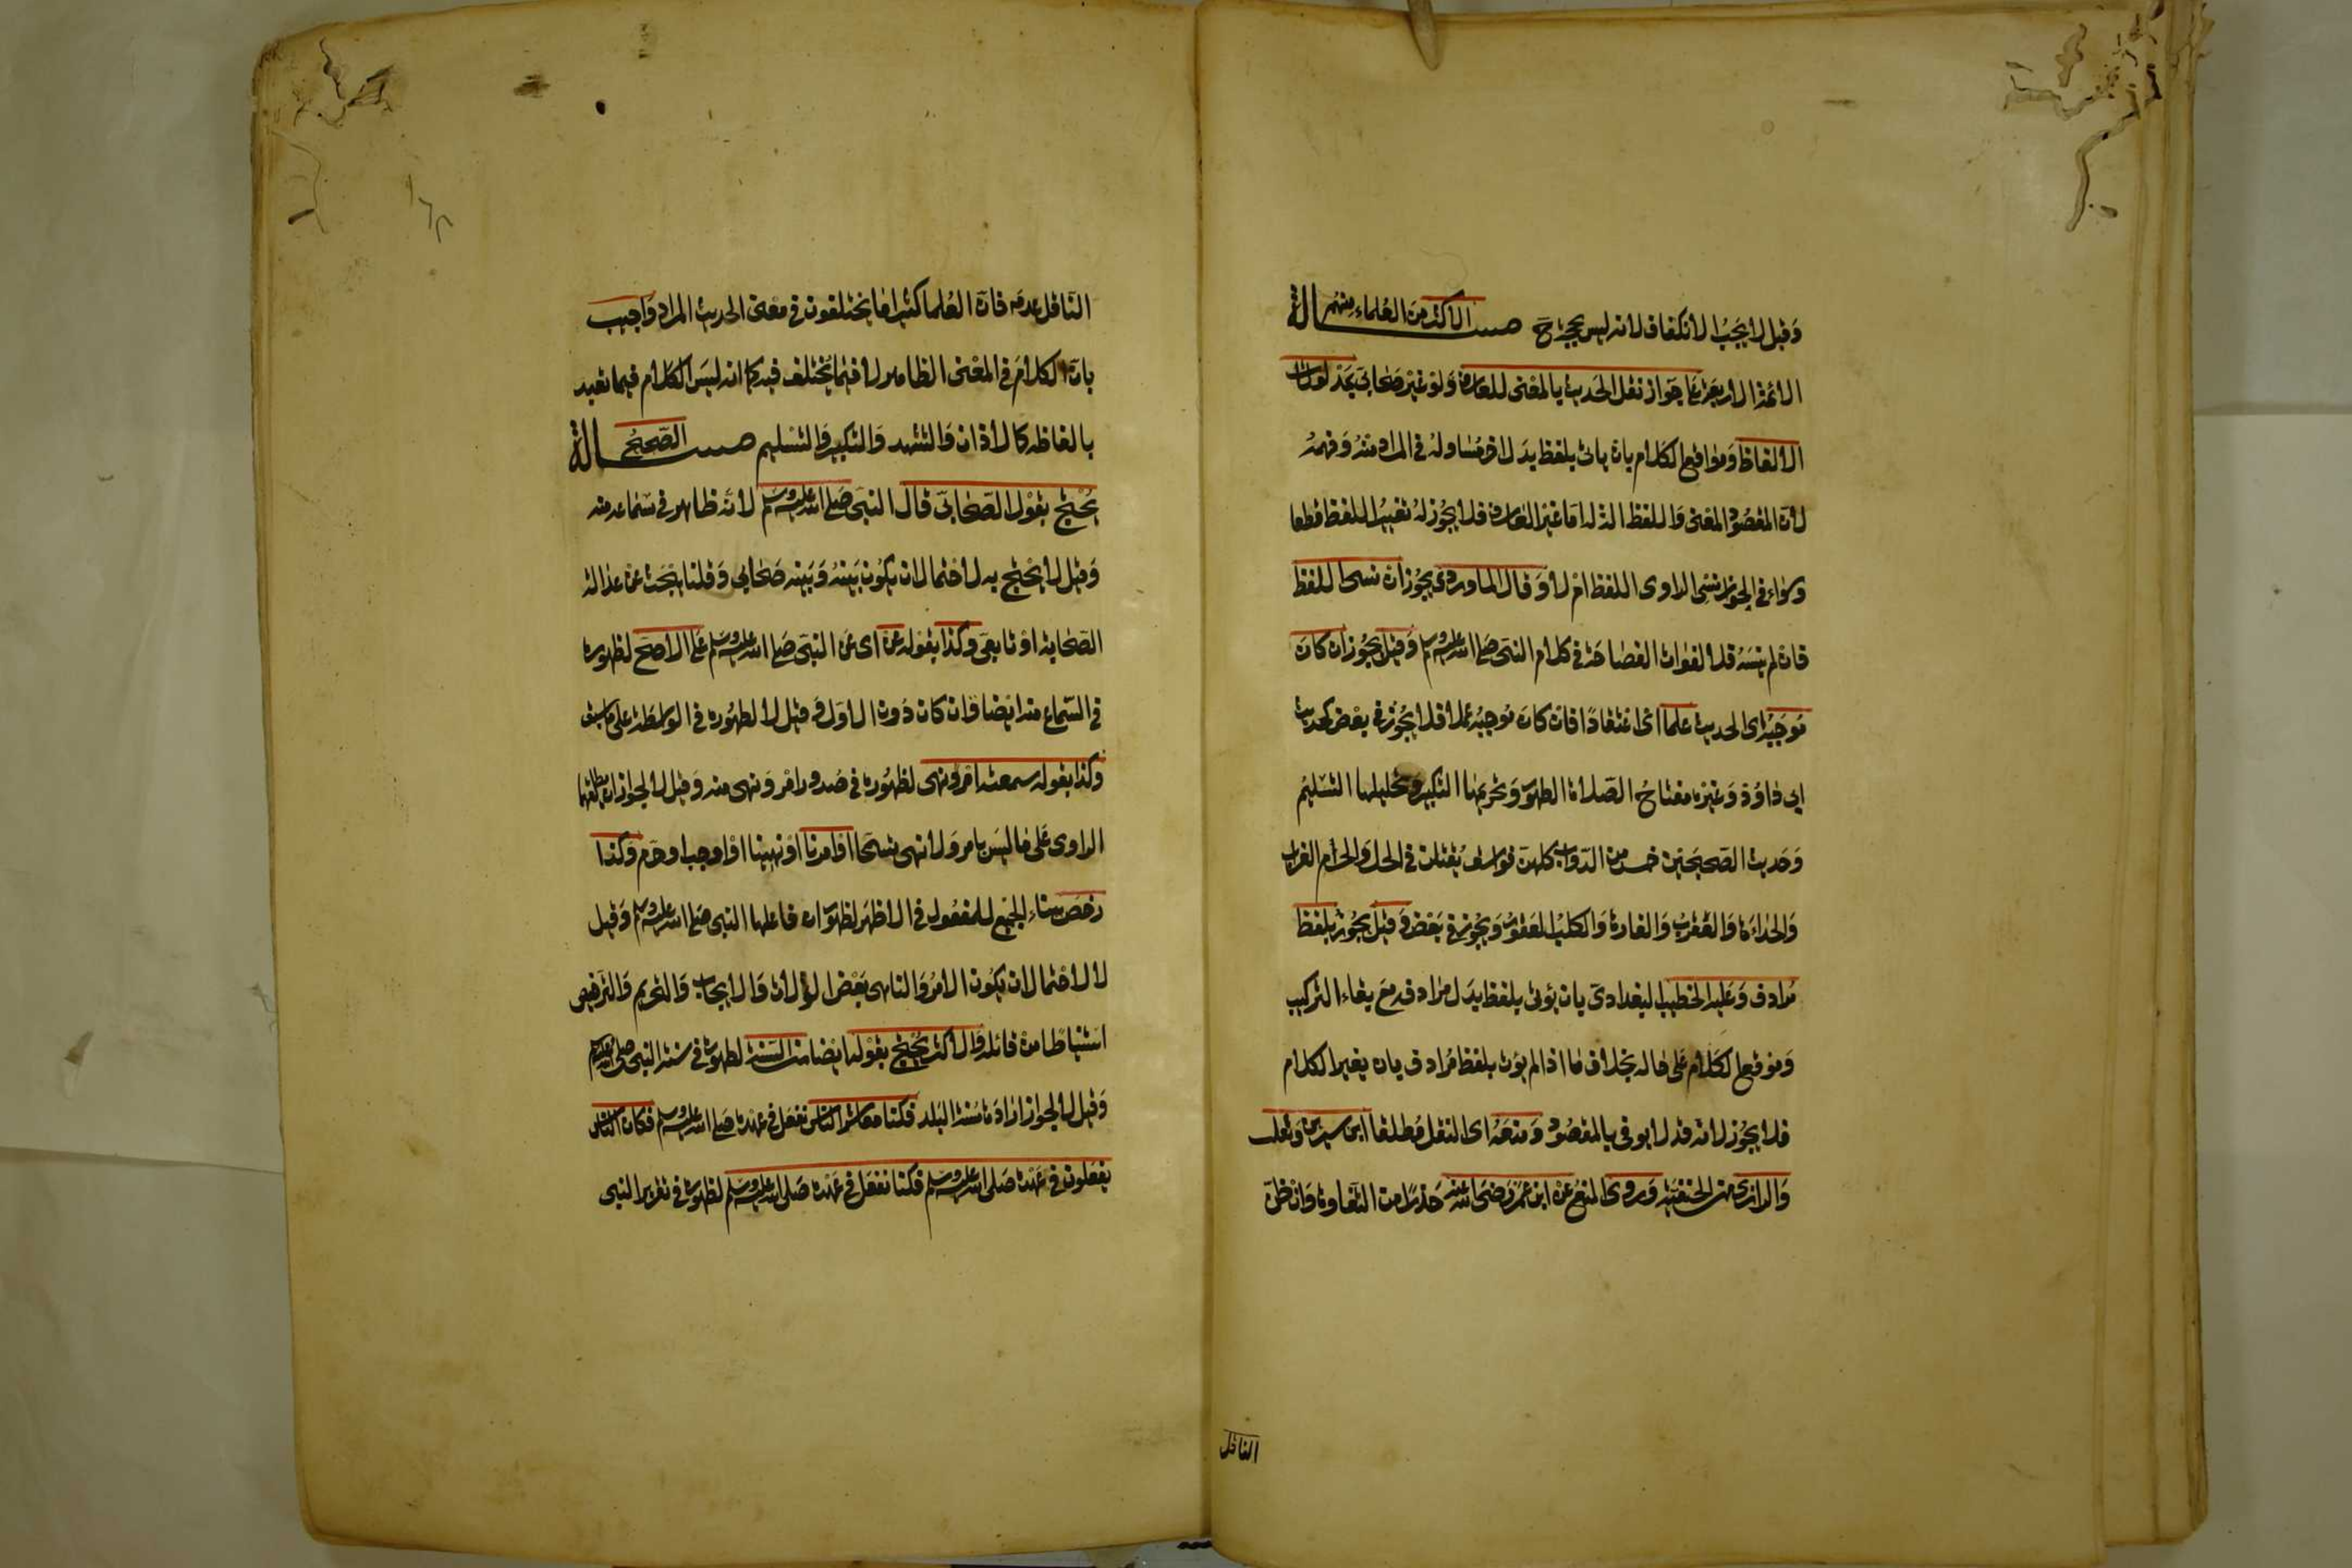 وقيل لا يجب الانكفاف لانه ليس بجرح مسالة الاكثر من العلماء منهم
الائمة الاربعة على جواز نقل الحديث بالمعنى للعارف ولو غير صحابي بمدلولات
الالفاظ ومواقع الكلام بان ياتي بلفظ بدل اخر مساو له في المراد منه وفهمه
لان المقصود المعنى واللفظ آلة له اما غير العارف فلا يجوز له تغيير اللفظ قطعا
وسواء في الجواز نسي الراوي اللفظ ام لا وقال الماوردي يجوز ان نسي اللفظ
فان لم ينسه فلا لفوات الفصاحة في كلام النبي صلى الله عليه وسلم وقيل يجوز ان كان
موجبه اي الحديث علما اي اعتقادا فان كان موجبه عملا فلا يجوز في بعض كحديث
ابي داود وغيره مفتاح الصلاة الطهور وتحريمها التكبير وتحليلها التسليم
وحديث الصحيحين خمس من الدواب كلهن فواسق يقتلن في الحل والحرم الغراب
والحداة والعقرب والفارة والكلب العقور ويجوز في بعض وقيل يجوز بلفظ
مرادف وعليه الخطيب البغدادي بان يؤتى بلفظ بدل مرادفه مع بقاء التركيب
وموقع الكلام على حاله بخلاف ما اذا لم يؤت بلفظ مرادف بان يغير الكلام
فلا يجوز لانه قد لا يوفي بالمقصود ومنعه اي النقل مطلقا ابن سيرين وثعلب
والرازي من الحنفية وروي المنع عن ابن عمر رضي الله عنه حذرا من التفاوت وان ظن
الناقل
الناقل عدمه فان العلما كثيرا ما يختلفون في معنى الحديث المراد واجيب
بان الكلام في المعنى الظاهر لا فيما يختلف فيه كما انه ليس الكلام فيما تعبد
بالفاظه كالاذان والتشهد والتكبير والتسليم مسالة الصحيح
يحتج بقول الصحابي قال النبي صلى الله عليه وسلم لانه ظاهر في سماعه منه
وقيل لا يحتج به لاحتمال ان يكون بينه وبينه صحابي وقلنا يبحث عن عدالة
الصحابة او تابعي وكذا بقوله عن اي عن النبي صلى الله عليه وسلم على الاصح لظهوره
في السماع منه ايضا وان كان دون الاول وقيل لا لظهوره في الواسطة على ما سبق
وكذا بقوله سمعته امر ونهى لظهوره في صدور امر ونهي منه وقيل لا لجواز ان يطلقهما
الراوي على ما ليس بامر ولا نهي تسمحا او امرنا او نهينا او اوجب او حرم وكذا
رخص ببناء الجميع للمفعول في الاظهر لظهور ان فاعلها النبي صلى الله عليه وسلم وقيل
لا لاحتمال ان يكون الامر والناهي بعض الولاة والايجاب والتحريم والترخيص
استنباطا من قائله والاكثر يحتج بقوله ايضا من السنة لظهوره في سنة النبي صلى الله عليه وسلم
وقيل لا لجواز ارادة سنة البلد فكنا معاشر الناس نفعل في عهده صلى الله عليه وسلم فكان الناس
يفعلون في عهده صلى الله عليه وسلم فكنا نفعل في عهده صلى الله عليه وسلم لظهوره في تقرير النبي